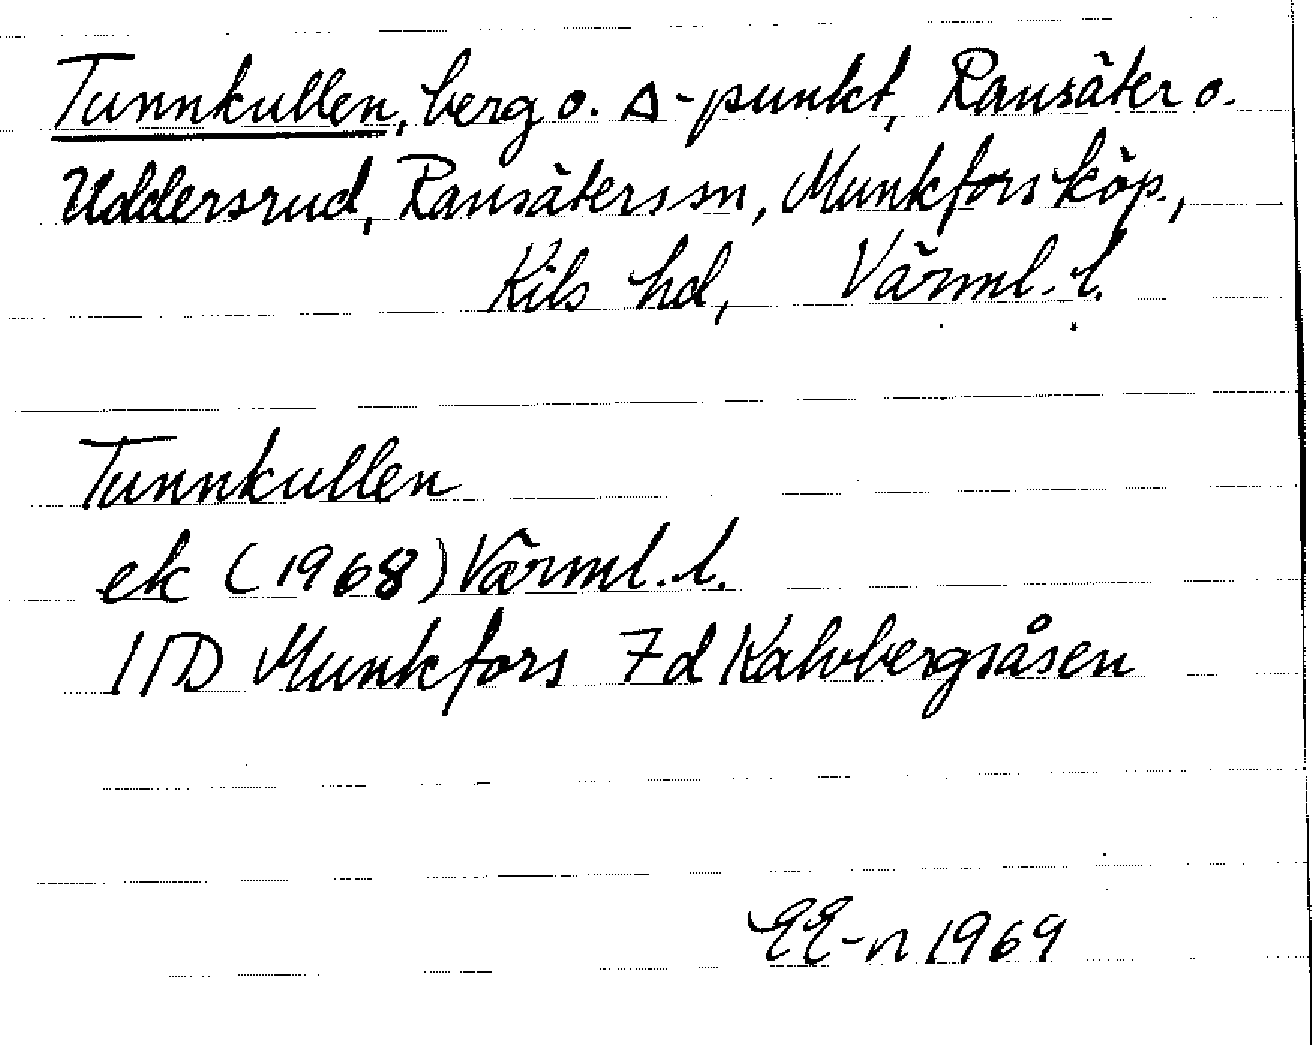 Tunnkullen, berg o. △-punkt, Ransäter o.
Uddersrud, Ransäters sn, Munkfors köp.,
Kils hd, Värml. l.
Tunnkullen
ek (1968) Värml. l.
11D Munkfors 7d Kalvbergsåsen
EE-n 1969